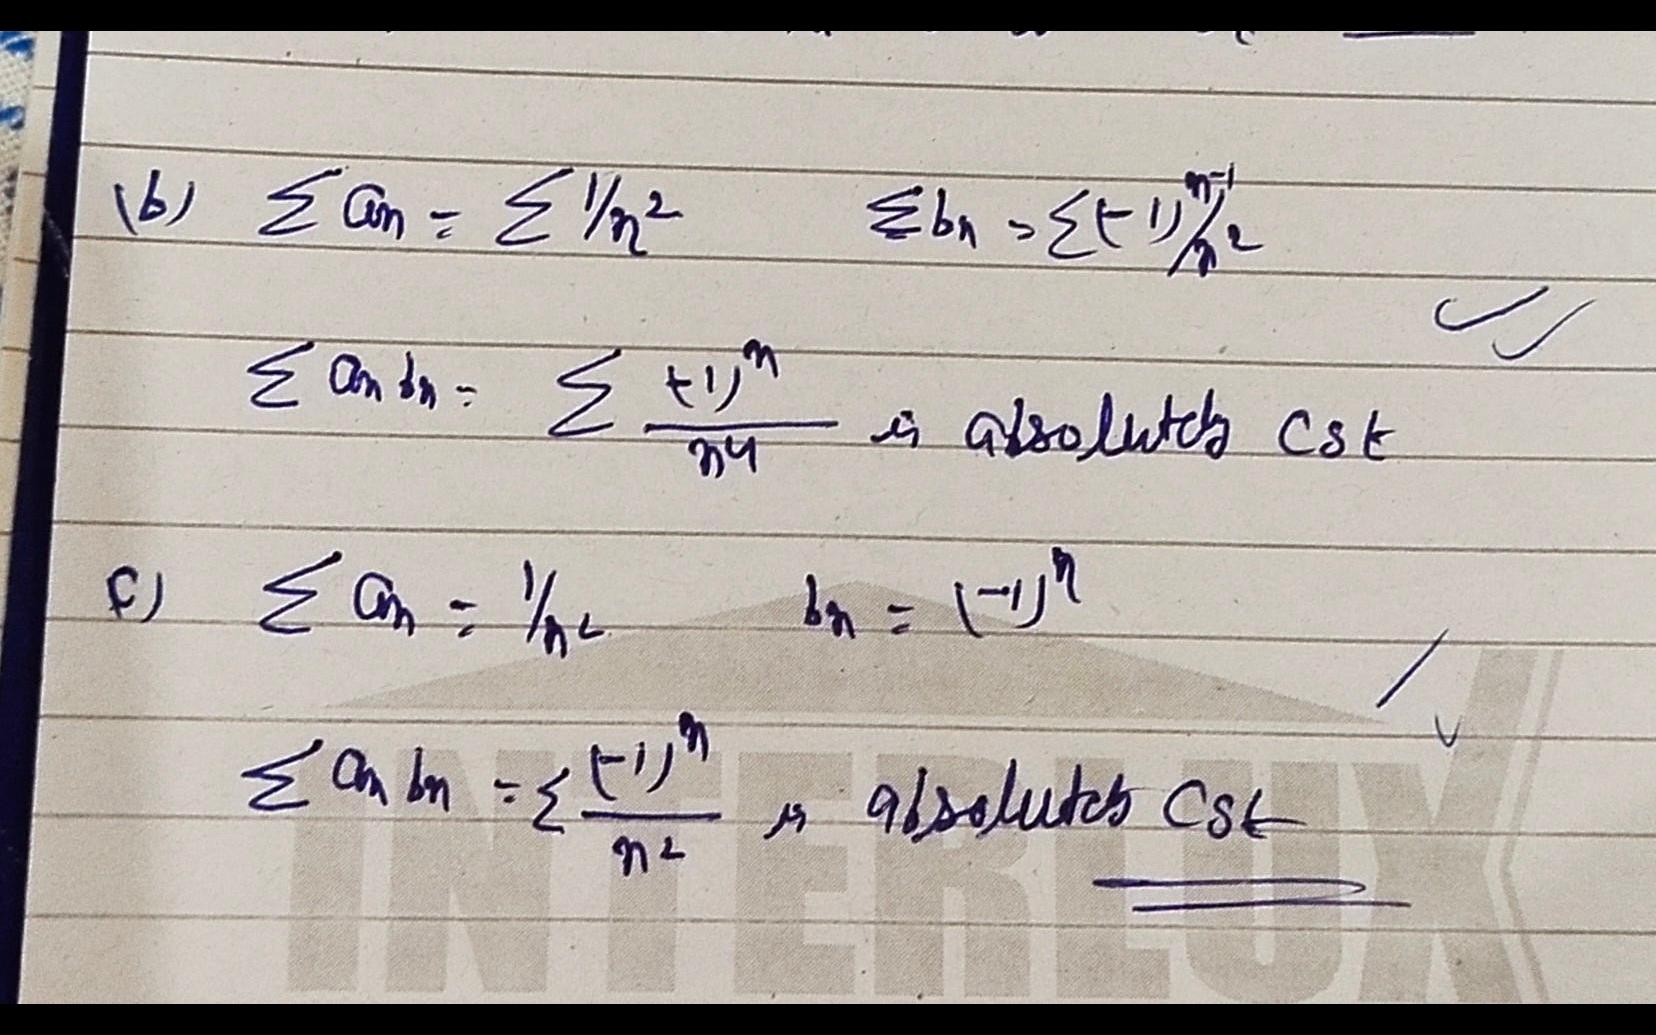 (b) Σ an = Σ 1/n² Σ bn = Σ (-1)^n-1/n²
Σ an bn = Σ (-1)^n / n⁴ is absolutely cst
c) Σ an = 1/n² bn = (-1)^n
Σ an bn = Σ (-1)^n / n² is absolutely cst
INTERLUX